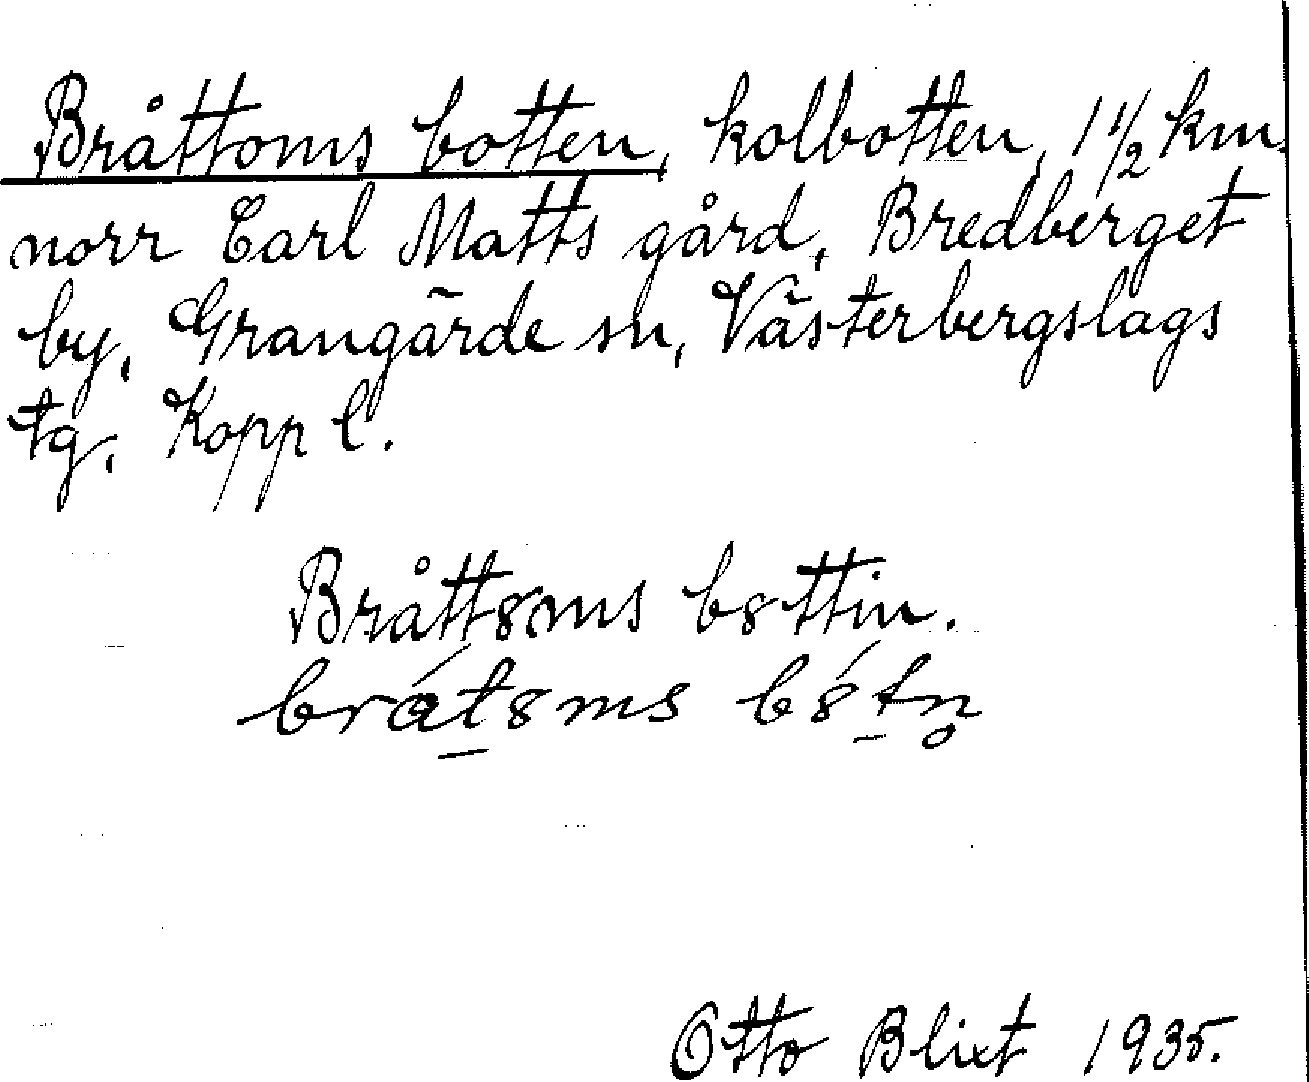 Bråttoms botten, kolbotten, 1 1/2 km.
norr Carl Matts gård, Bredberget
by, Grangärde sn, Västerbergslags
tg. Kopp l.
Brått8ms b8ttin.
bråt8ms b8tn̥
Otto Blixt 1935.